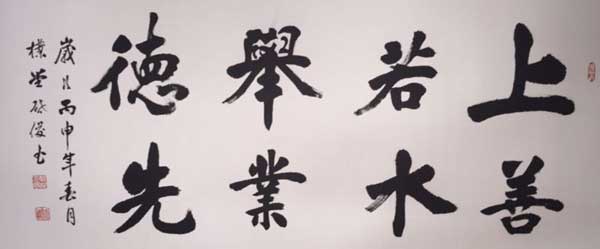 上善
若水
舉業
德先
歲次丙申年春月